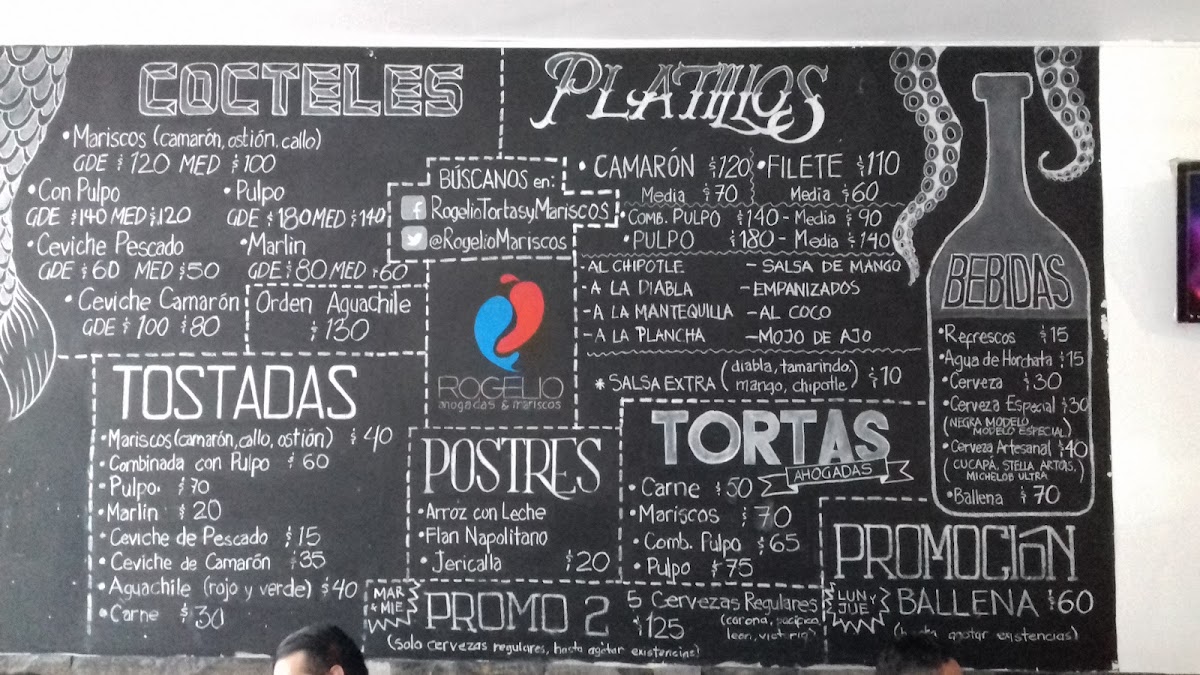 COCTELES
• Mariscos (camarón, ostión, callo)
GDE $120 MED $100
• Con Pulpo
GDE $140 MED $120
• Pulpo
GDE $180 MED $140
• Ceviche Pescado
GDE $60 MED $50
• Marlin
GDE $80 MED $60
• Ceviche Camarón
GDE $100 $80
Orden Aguachile
$130
BÚSCANOS en:
f RogelioTortasyMariscos
@RogelioMariscos
ROGELIO
ahogadas & mariscos
PLATILLOS
• CAMARÓN $120
Media $70
• FILETE $110
Media $60
• COMB. PULPO $140 - Media $90
• PULPO $180 - Media $140
- AL CHIPOTLE
- A LA DIABLA
- A LA MANTEQUILLA
- A LA PLANCHA
- SALSA DE MANGO
- EMPANIZADOS
- AL COCO
- MOJO DE AJO
* SALSA EXTRA (diabla, tamarindo,
mango, chipotle) $10
BEBIDAS
• Refrescos $15
• Agua de Horchata $15
• Cerveza $30
• Cerveza Especial $30
(NEGRA MODELO
MODELO ESPECIAL)
• Cerveza Artesanal $40
(CUCAPÁ, STELLA ARTOIS,
MICHELOB ULTRA)
• Ballena $70
TOSTADAS
• Mariscos (camarón, callo, ostión) $40
• Combinada con Pulpo $60
• Pulpo. $70
• Marlin $20
• Ceviche de Pescado $15
• Ceviche de Camarón $35
• Aguachile (rojo y verde) $40
• Carne $30
POSTRES
• Arroz con Leche
• Flan Napolitano
• Jericalla $20
TORTAS
AHOGADAS
• Carne $50
• Mariscos $70
• Comb. Pulpo $65
• Pulpo $75
MAR
& MIE
PROMO 2
5 Cervezas Regulares
$125 (corona, pacifico,
leon, victoria)
(solo cervezas regulares, hasta agotar existencias)
PROMOCIÓN
LUN Y
JUE
BALLENA $60
(hasta agotar existencias)